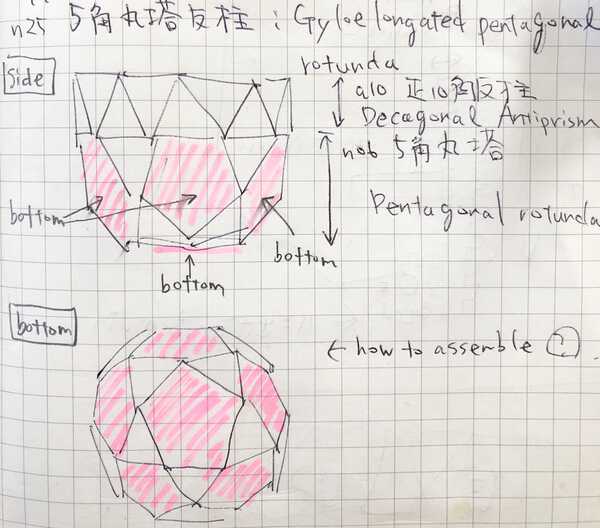 n25 5角丸塔反柱 : Gyloelongated pentagonal
rotunda
Side
a10 正10角反柱
Decagonal Antiprism
n06 5角丸塔
Pentagonal rotunda
bottom
bottom
bottom
bottom
← how to assemble